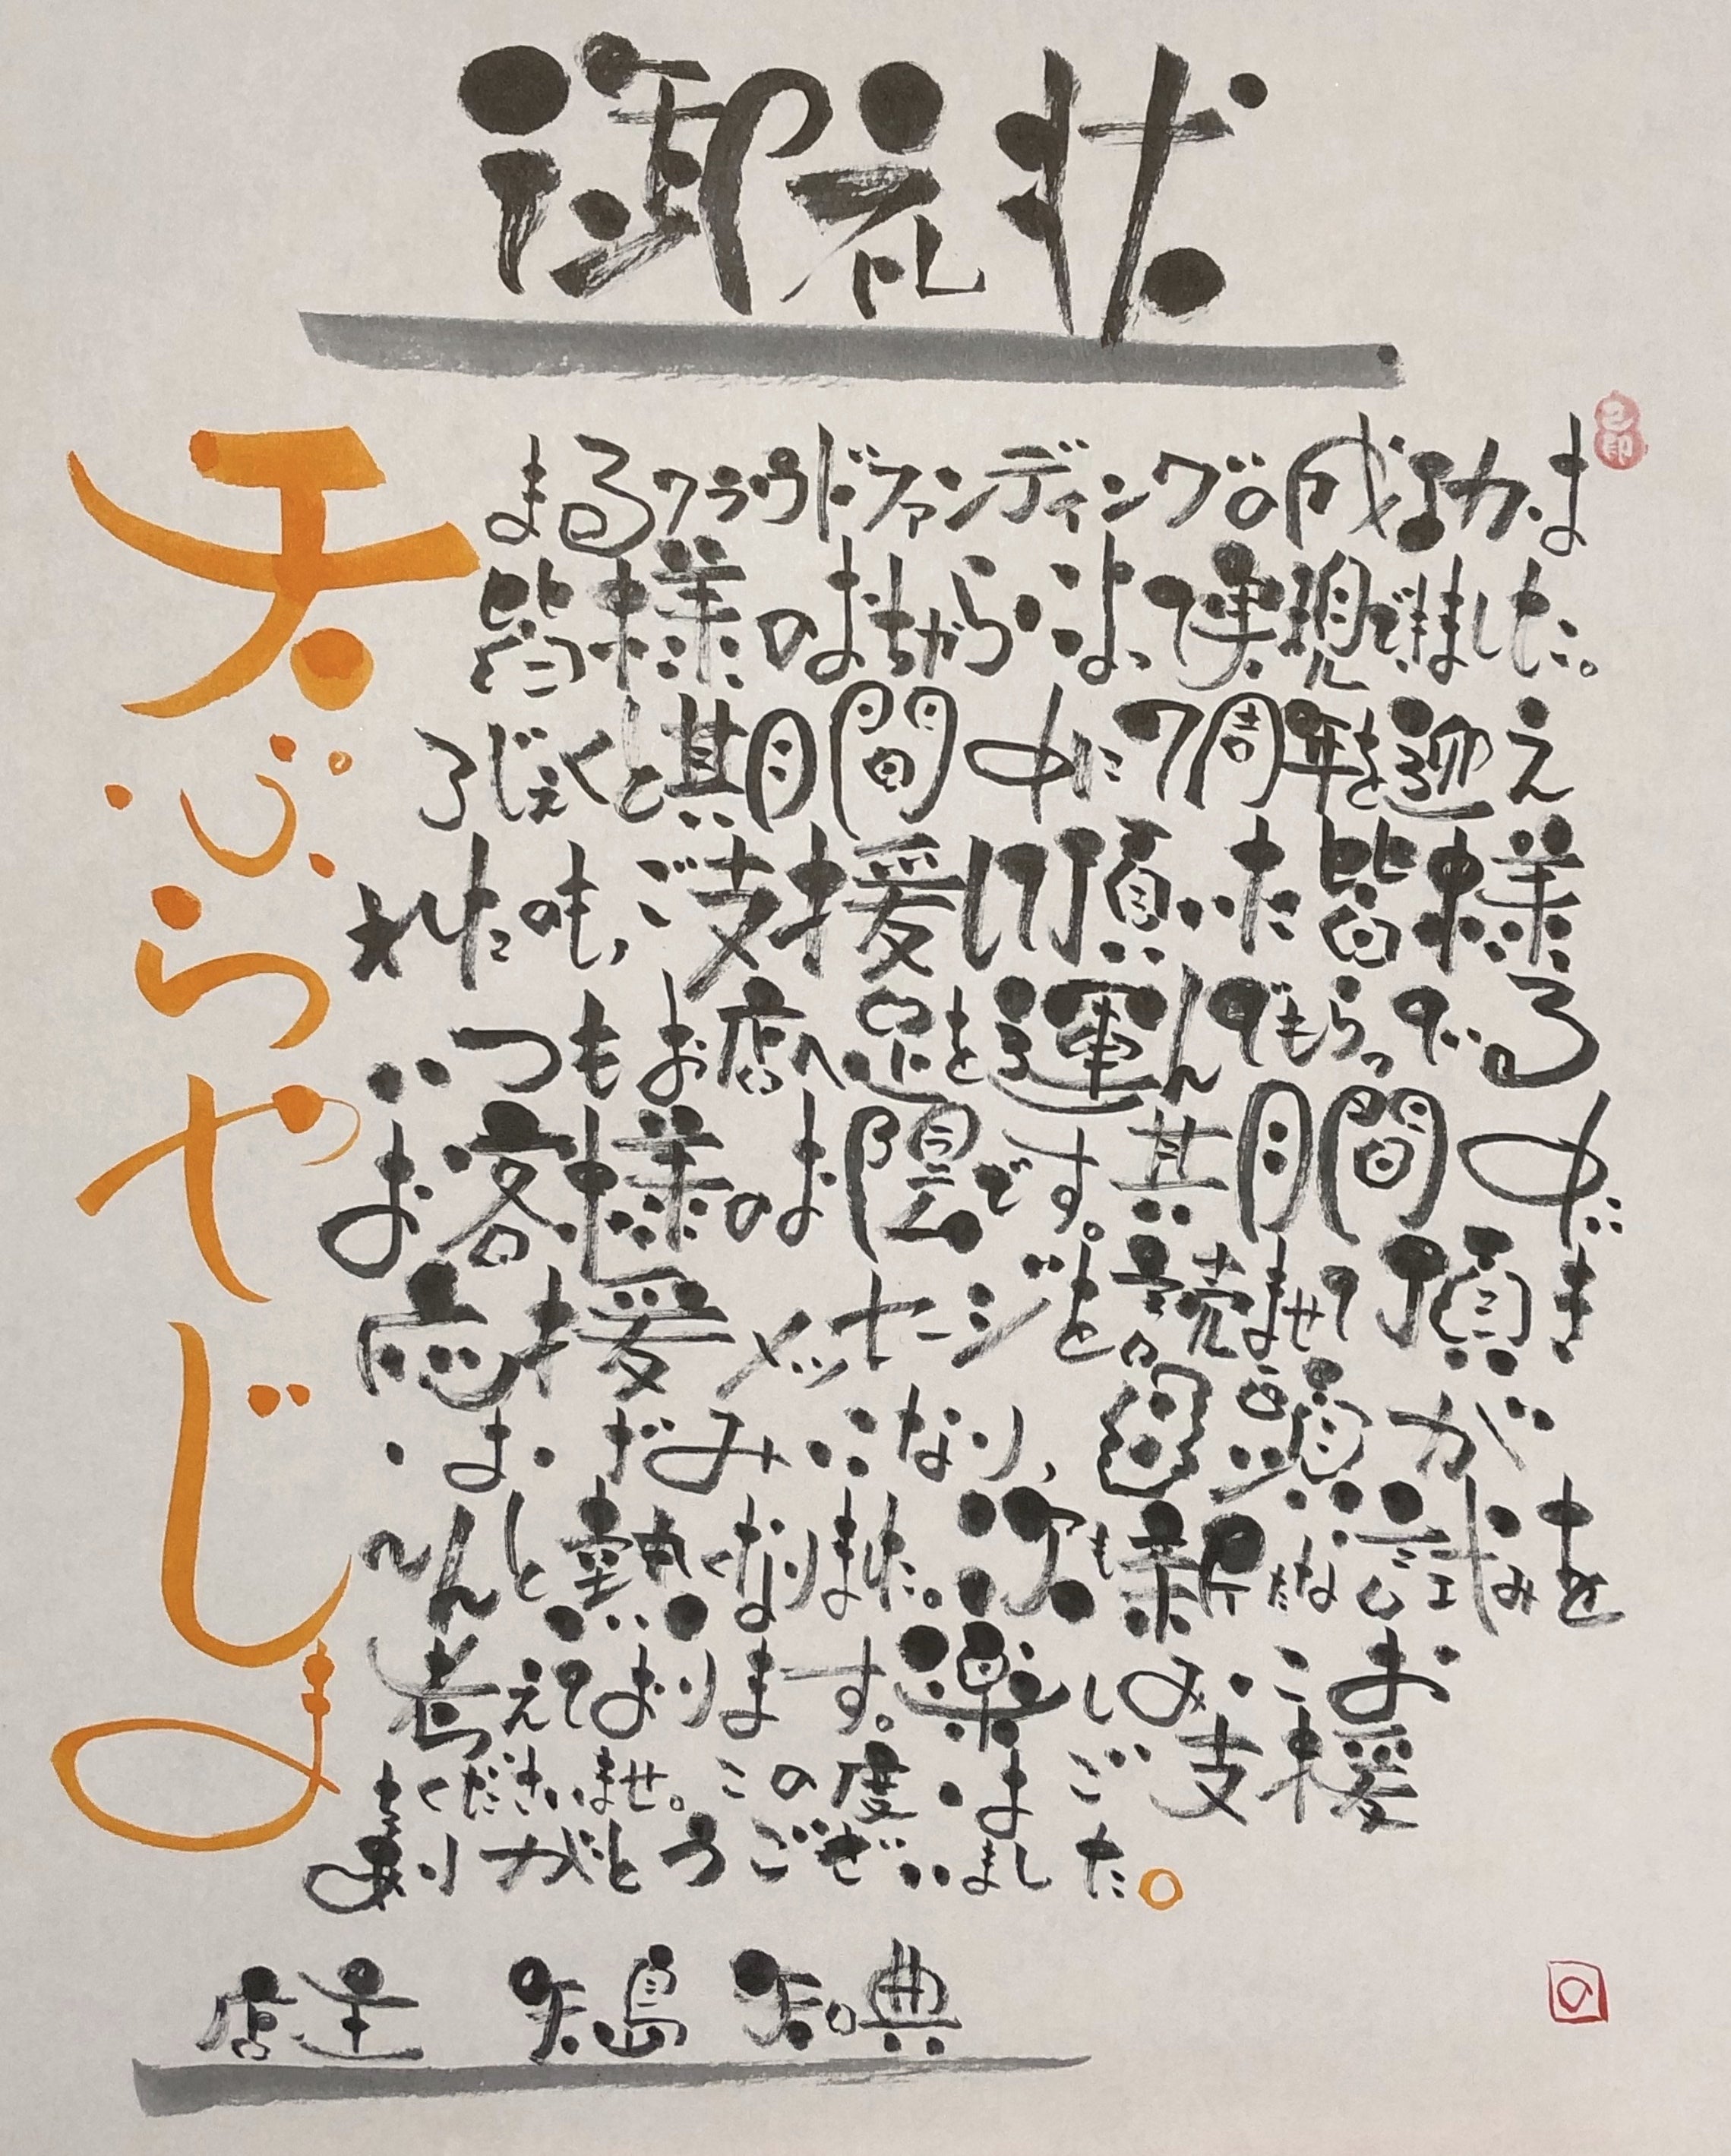 御礼状
天ぷらやじま
まるクラウドファンディングの成功は
皆様のおちからによって実現できました。
ろじぇくと期間中に7周年を迎え
れたのも、ご支援頂いた皆様
いつもお店へ足を運んでもらってる
お客様のお陰です。期間中に
応援メッセージを読ませて頂き
はげみになり、目頭が
じんと熱くなりました。次も新たな試みを
考えております。楽しみにお
待ちくださいませ。この度はご支援
ありがとうございました。
店主 矢島 知典